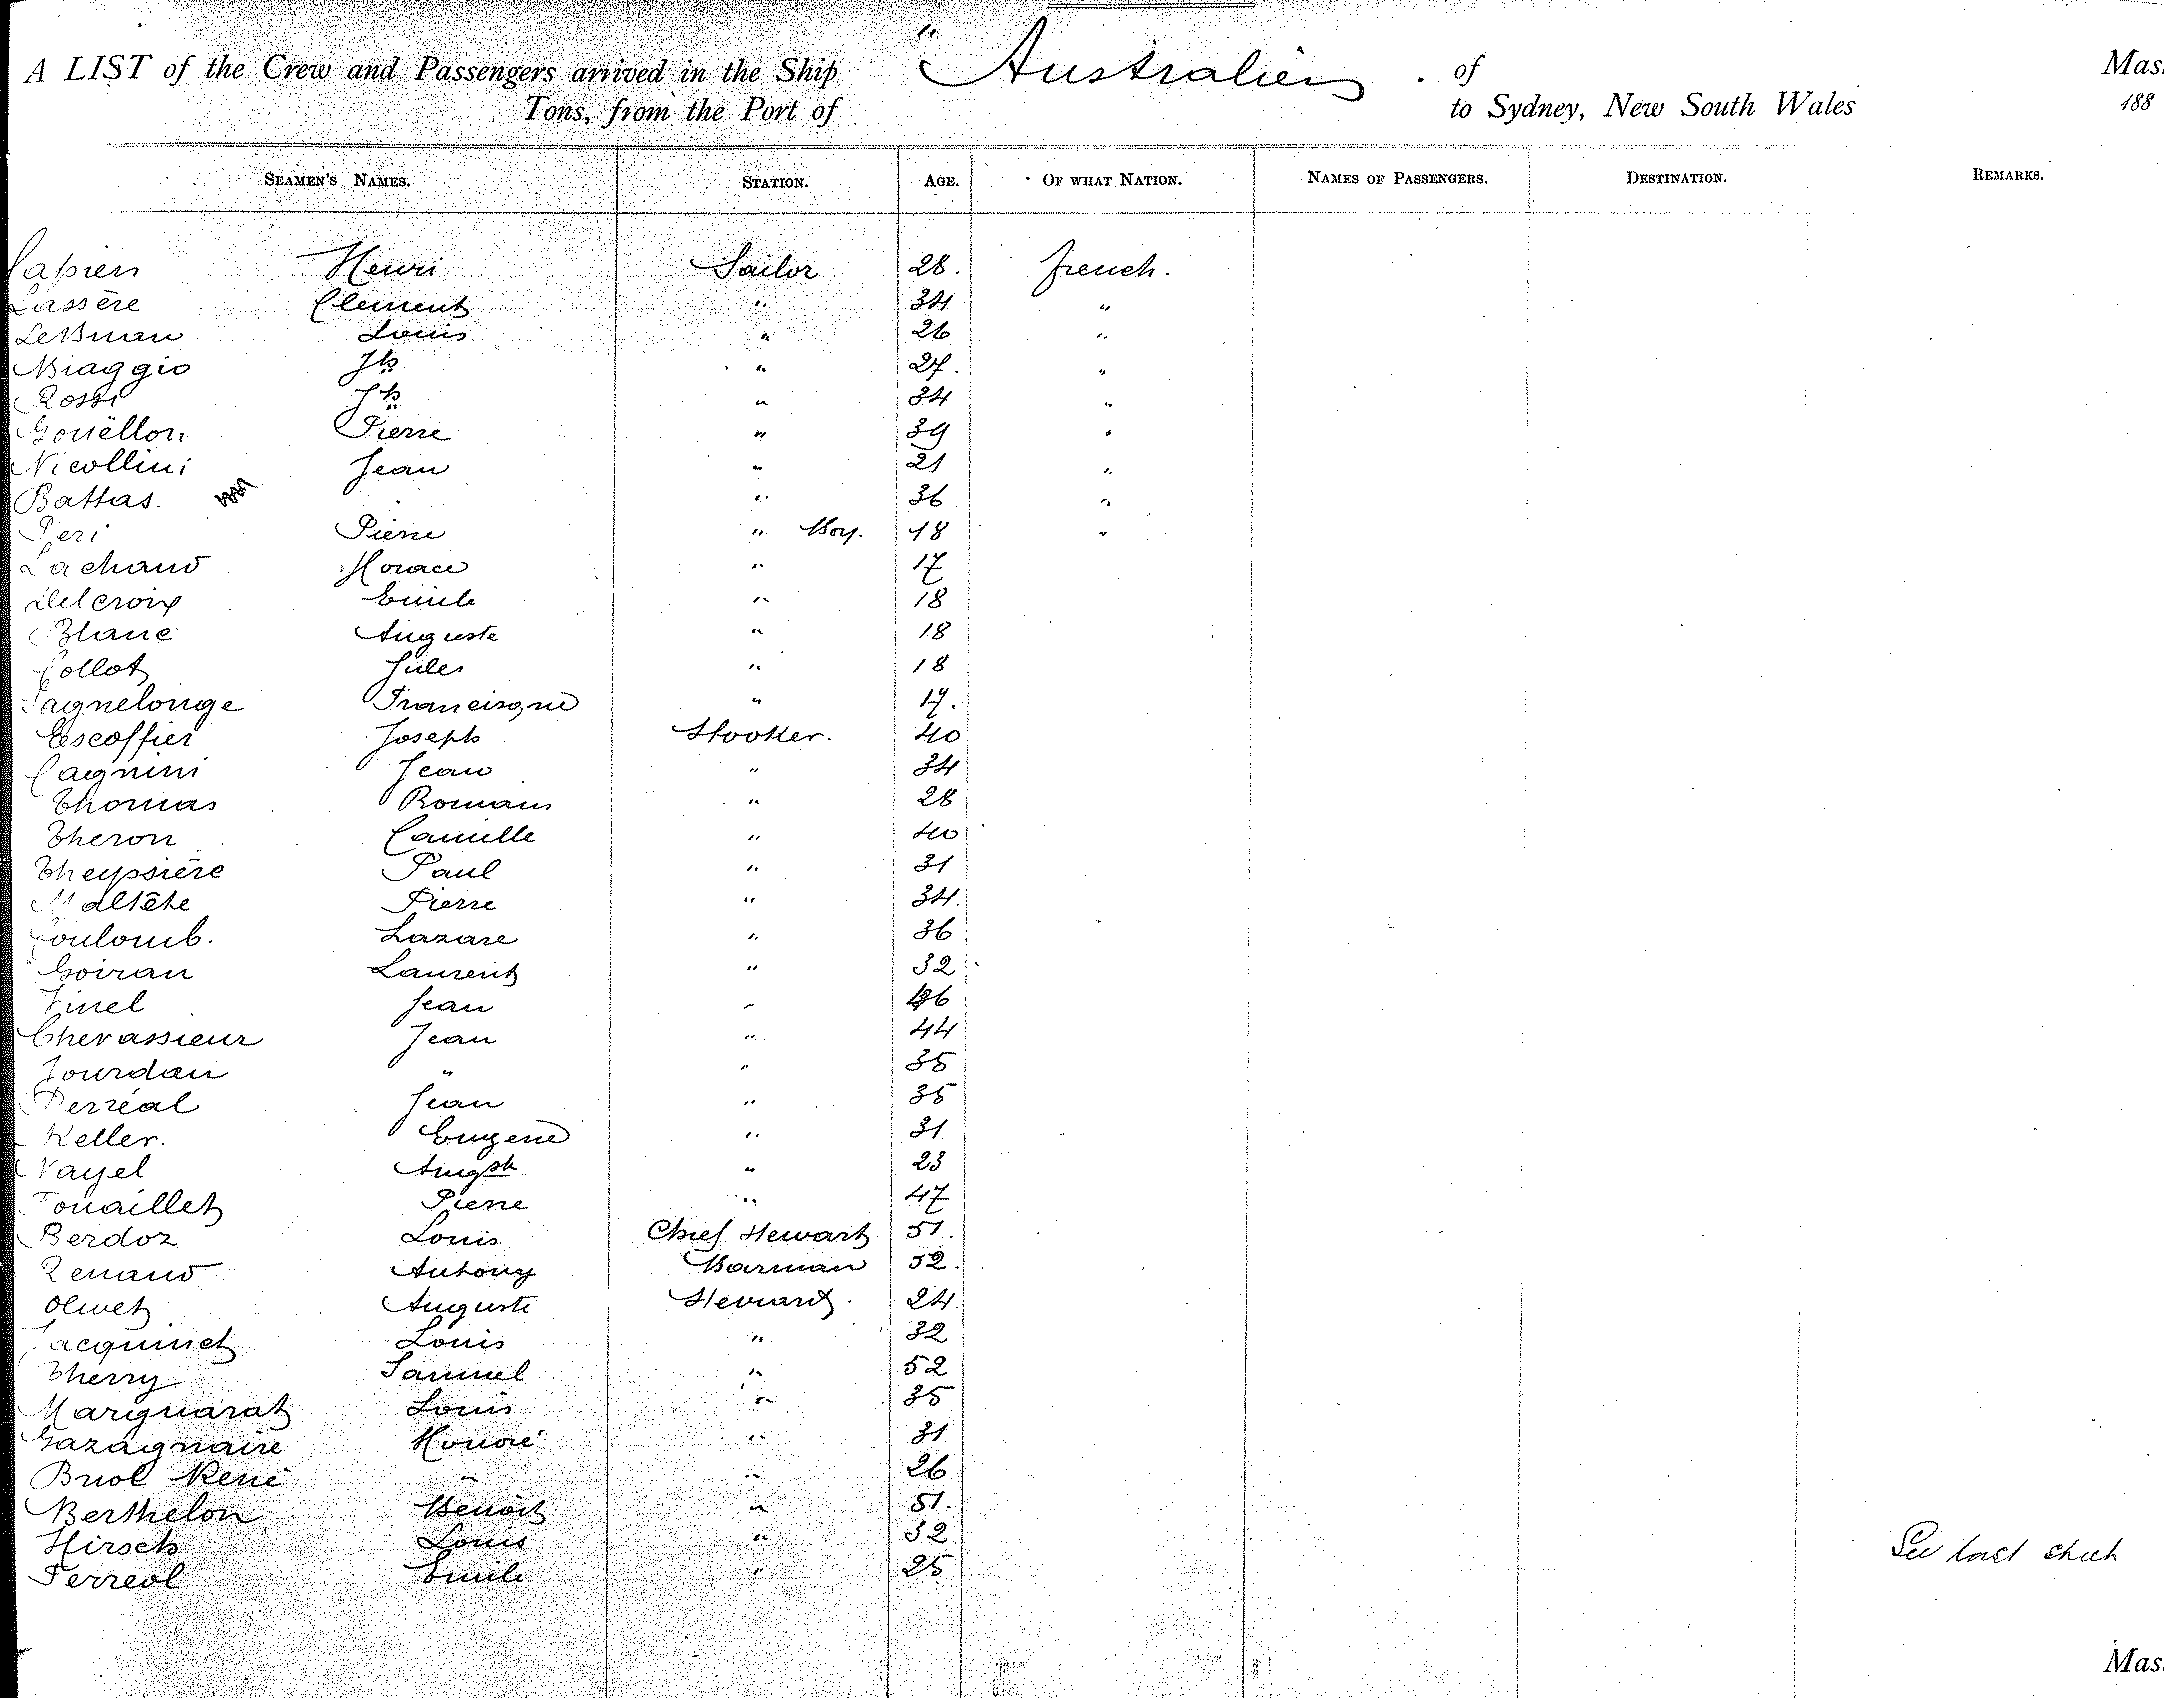 A LIST of the Crew and Passengers arrived in the Ship "Australien . of Mas
Tons, from the Port of to Sydney, New South Wales 188
SEAMEN'S NAMES. STATION. AGE. OF WHAT NATION. NAMES OF PASSENGERS. DESTINATION. REMARKS.
Henri Sailor 28. french.
Lassère Clement " 34 "
Louis " 26 "
Biaggio Jh " 27. "
Rossi Jh " 34 "
Gouëllon Pierre " 39 "
Nicollini Jean " 21 "
Battas. " 36 "
Peri Pierre " Boy. 18 "
Lachaud Horace " 17
Delcroix Emile " 18
Blanc Auguste " 18
Collot Jules " 18
Francisque " 17.
Escoffier Joseph Stooker. 40
Cagnini Jean " 34
Thomas Romans " 28
Theron Camille " 40
Theyssière Paul " 31
Maltête Pierre " 34.
Coulomb. Lazare " 36
Goiran Laurent " 32
Finel Jean "
Chevassieur Jean " 44
Jourdan " " 35
Perréal Jean " 35
Keller. Eugene " 31
Vayel " 23
Touaillet Pierre " 47
Berdoz Louis Chief Stewart 51.
Renaud Antony Barman 52.
Olivet Auguste Steward. 24
Jacquinet Louis " 32
Therry Samuel " 52
Marquarat Louis " 35
Gazagnaire Honoré " 31
Briol René " " 26
Berthelon Benoit " 51.
Hirsch Louis " 32
Ferreol Emile " 25
See last
Mas